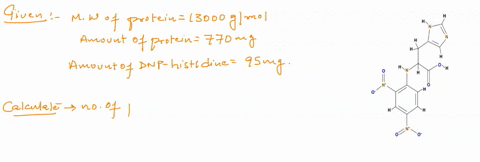 Given :- M.W of protein = 13000 g/mol
Amount of protein = 770 mg
Amount of DNP-histidine = 95 mg.
Calculate → no. of